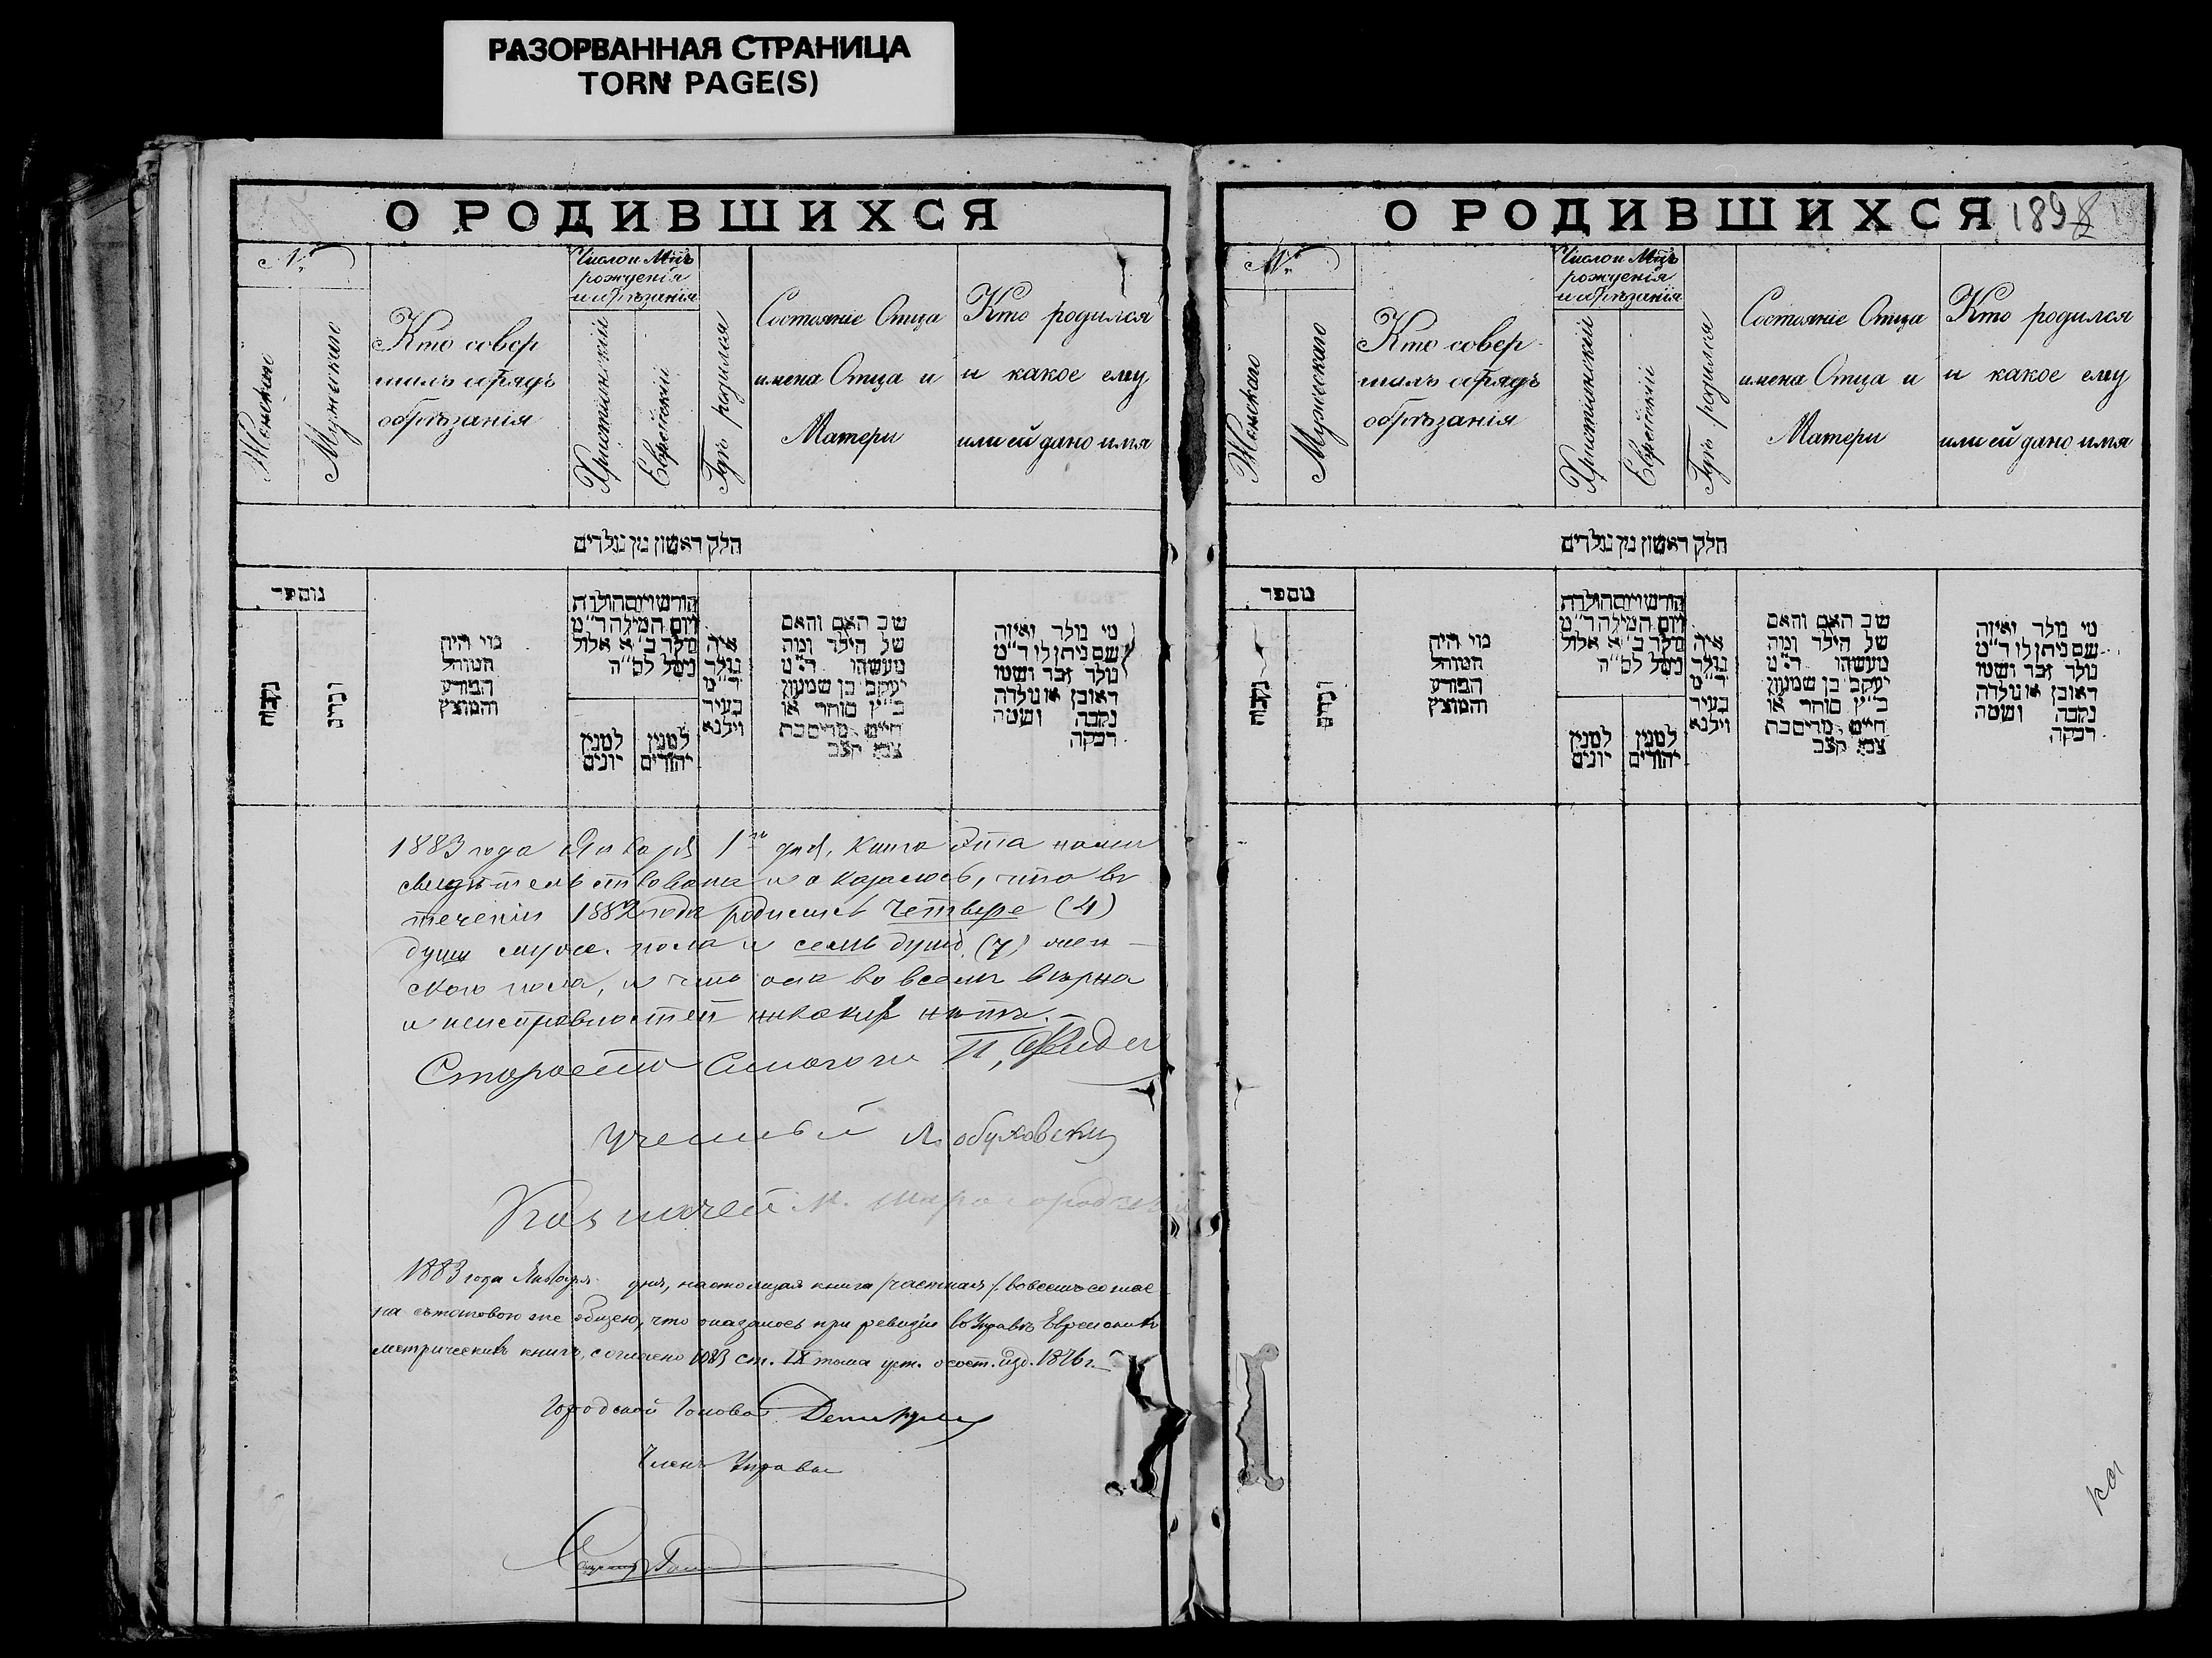 РАЗОРВАННАЯ СТРАНИЦА
TORN PAGE(S)
О РОДИВШИХСЯ
№
Женскаго
Мужескаго
Кто совер
шилъ обрядъ
обрѣзанія
Число и Мцъ
рожденія
и обрѣзанія
Христіянскій
Еврейскій
Гдѣ родился
Состояніе Отца
имена Отца и
Матери
Кто родился
и какое ему
или ей дано имя
חלק ראשון מן נולדים
מספר
נקבה
זכרים
מי היה
המוהל
הפורע
והמוצץ
חודש ויום הולדת
ויום המילה ד״מ
נולד ב׳ א אלול
נימל לס״ה
למנין
יונים
למנין
יהודים
איה
נולד
ד״מ
בעיר
וילנא
שב האם והאם
של הילד ומה
מעשהו ד״מ
יעקב בן שמעון
כ״ץ סוחר או
חיים מריםבת
צבי קצב
מי נולד ואיזה
שם ניתן לו ד״מ
נולד זכר ושמו
ראובן או נולדה
נקבה ושמה
רבקה
1883 года Января 1го дня, книга эта нами
свидѣтельствована и оказалось, что въ
теченіи 1882 года родились четверо (4)
души муж. пола и семь душъ (7) жен-
скаго пола, и что она во всемъ вѣрна
и неисправностей никакихъ нѣтъ.-
Староста Синагоги
Ученый
Казначей М.
1883 года Января дня, настоящая книга /частная/ во всемъ соглас
на съ таковою же общею, что оказалось при ревизіи въ Управѣ Еврейскихъ
метрическихъ книгъ, согласно 1083 ст. IX тома уст. о сост. изд. 1876 г.
Городской Голова
Членъ Управы
О РОДИВШИХСЯ 189
№
Женскаго
Мужескаго
Кто совер
шилъ обрядъ
обрѣзанія
Число и Мцъ
рожденія
и обрѣзанія
Христіянскій
Еврейскій
Гдѣ родился
Состояніе Отца
имена Отца и
Матери
Кто родился
и какое ему
или ей дано имя
חלק ראשון מן נולדים
מספר
נקבה
זכרים
מי היה
המוהל
הפורע
והמוצץ
חודש ויום הולדת
ויום המילה ד״מ
נולד ב׳ א אלול
נימל לס״ה
למנין
יונים
למנין
יהודים
איה
נולד
ד״מ
בעיר
וילנא
שב האם והאם
של הילד ומה
מעשהו ד״מ
יעקב בן שמעון
כ״ץ סוחר או
חיים מריםבת
צבי קצב
מי נולד ואיזה
שם ניתן לו ד״מ
נולד זכר ושמו
ראובן או נולדה
נקבה ושמה
רבקה